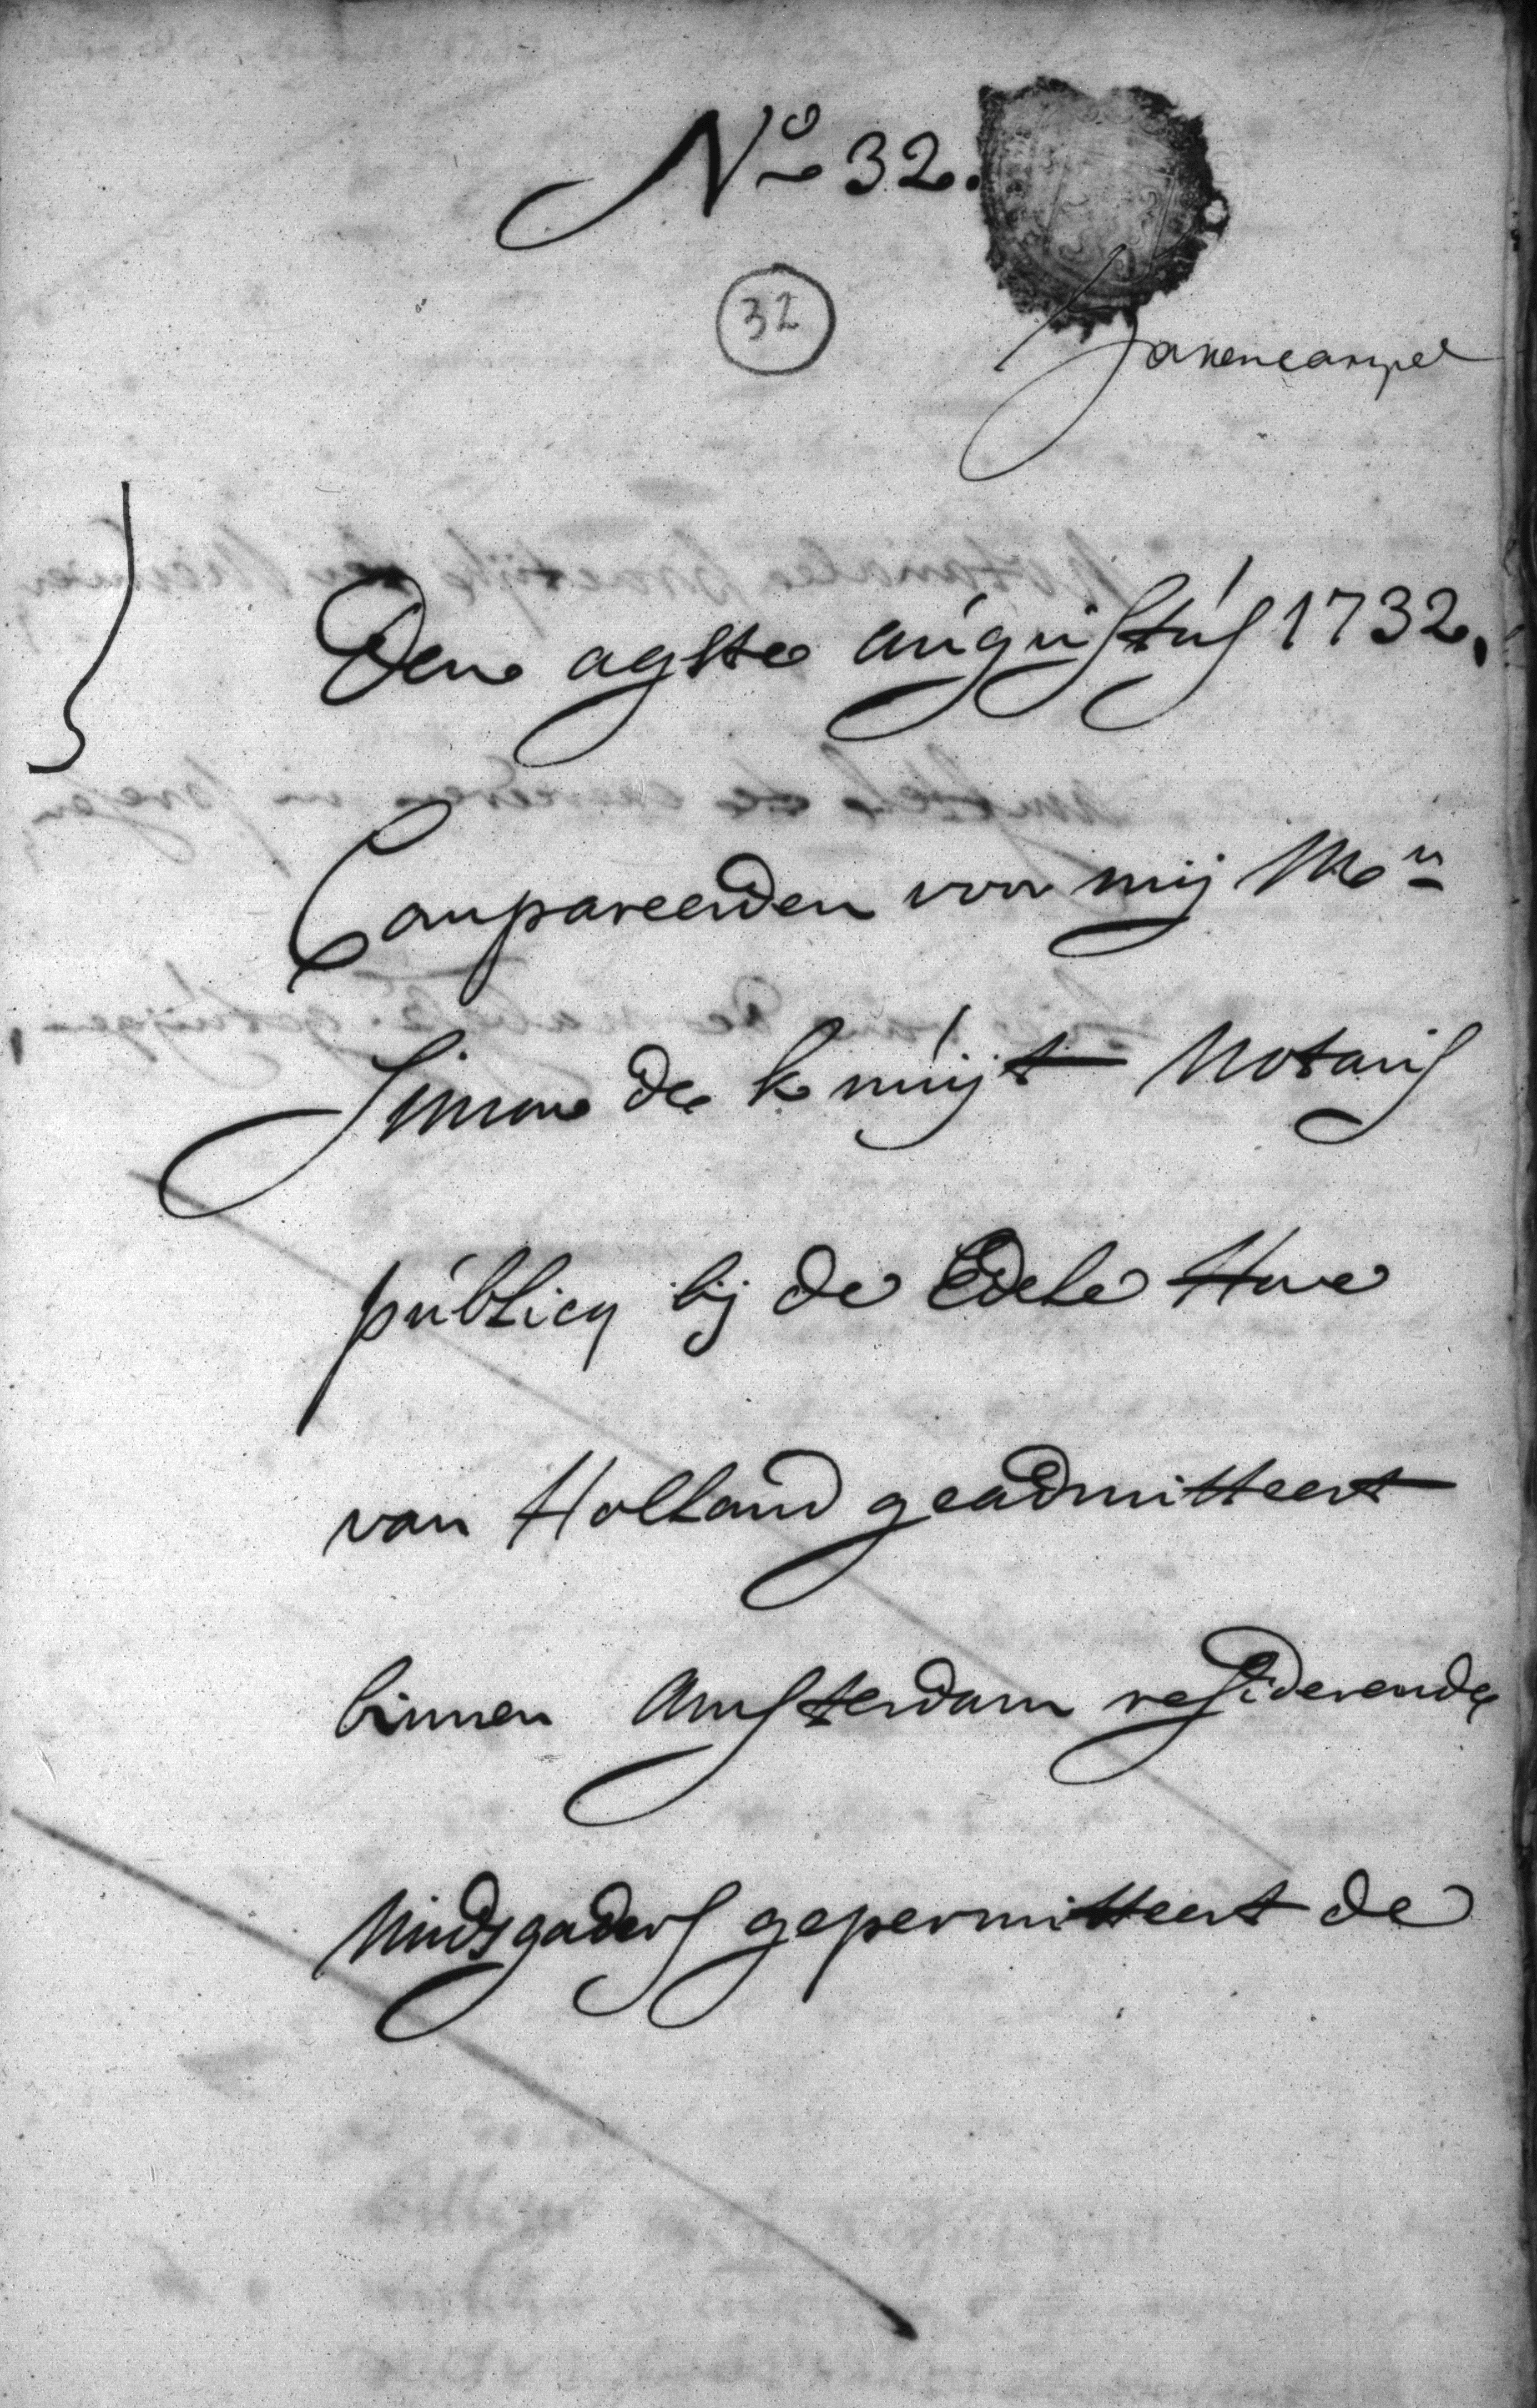 No 32.
32
Den agste augustus 1732,
Compareerden voor mij Mr
Simon de Kruijt Notaris
publicq bij de Edele Hove
van Holland geadmitteert
binnen Amsterdam resideerende
midsgaders gepermitteert de